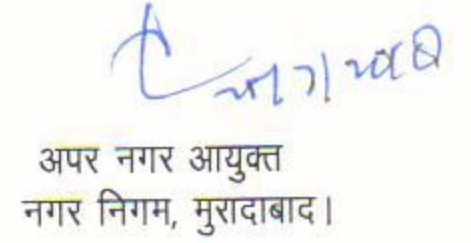 अपर नगर आयुक्त
नगर निगम, मुरादाबाद।